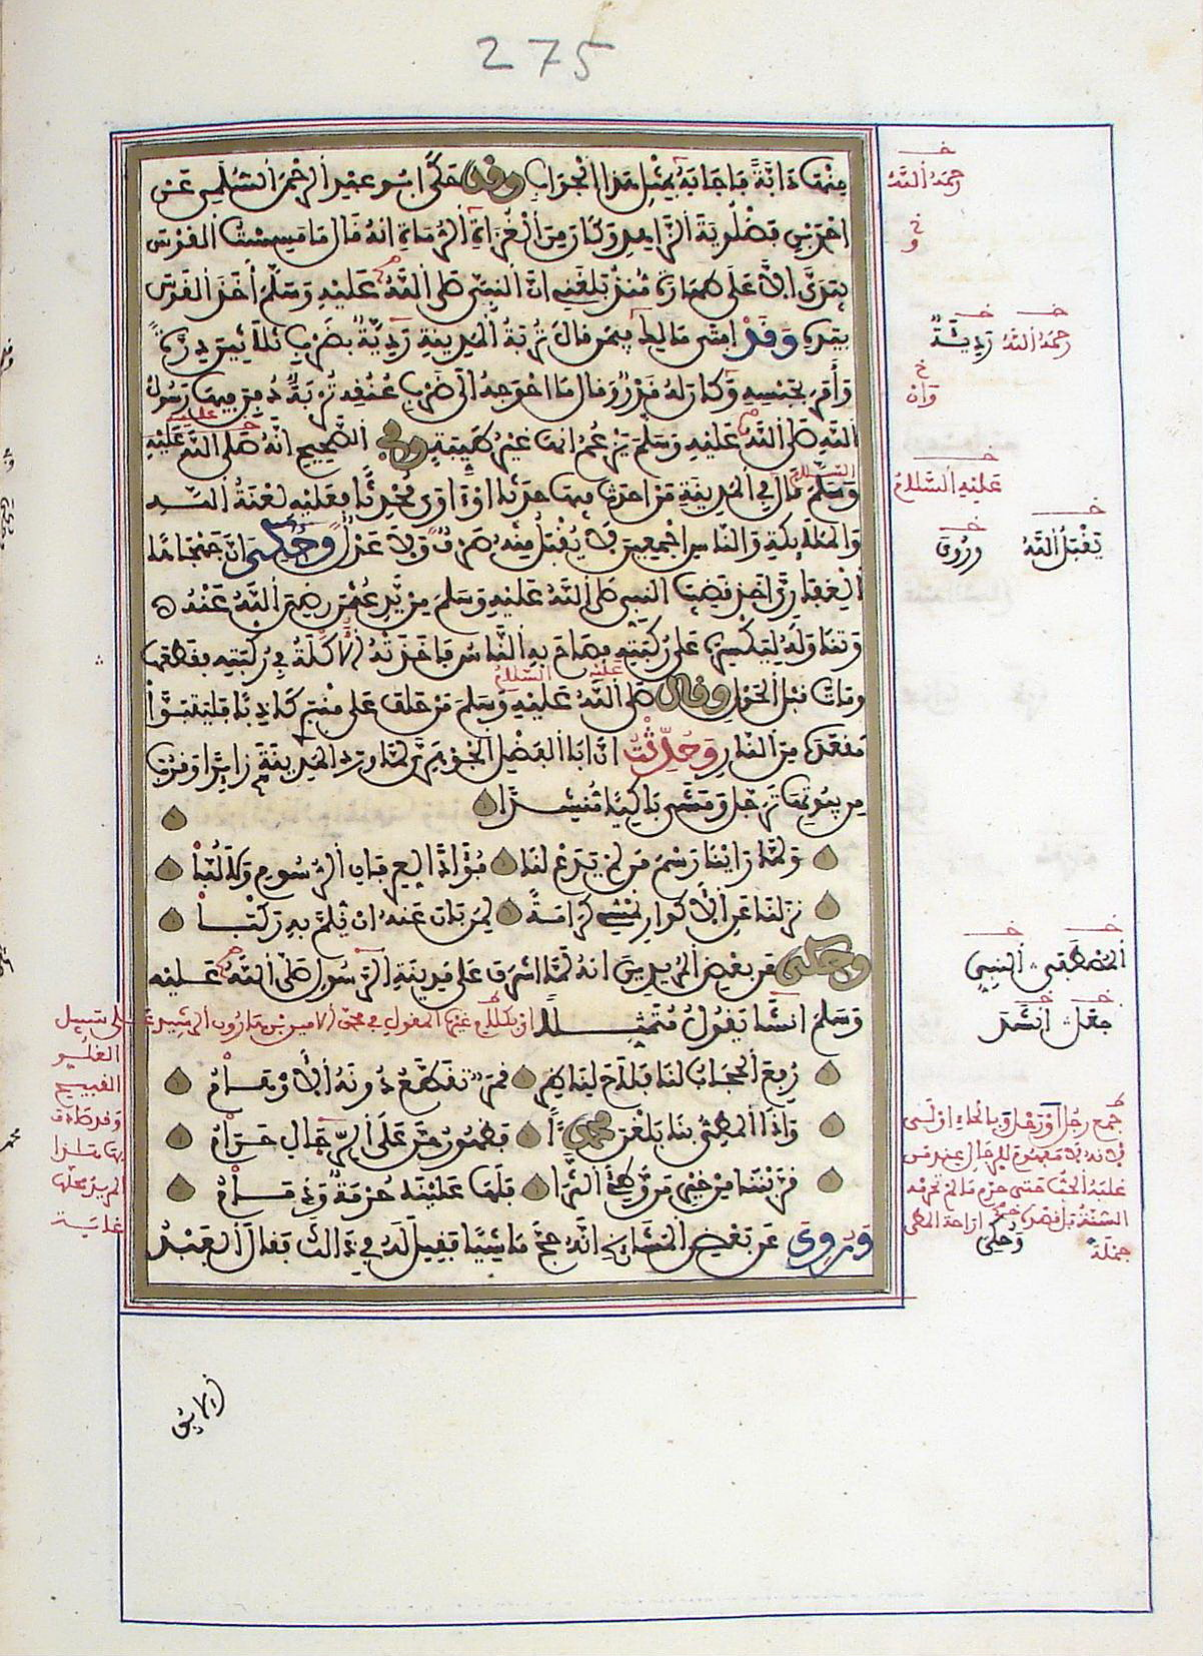 275
منها دابة فأجابه بمثل هذا الجواب وقد حكى ابو عبد الرحمن السلمي عن
احمد بن فضلويه الزاهد وكان من الغزاة الرماة انه قال ما مسست القوس
بيدي الا على طهارة منذ بلغني ان النبي صلى الله عليه وسلم أخذ القوس
بيده وقد افتى مالك فيمن قال تربة المدينة ردية بضرب ثلاثين درة
وأمر بحبسه وكان له قدر وقال ما احوجه الى ضرب عنقه تربة دفن فيها رسول
الله صلى الله عليه وسلم يزعم انها غير طيبة وفي الصحيح انه صلى الله عليه
وسلم قال في المدينة من احدث فيها حدثا او اوى محدثا فعليه لعنة الله
والملائكة والناس اجمعين لا يقبل منه صرف ولا عدل وحكي ان جهجاها
الغفاري اخذ قضيب النبي صلى الله عليه وسلم من يد عثمن رضي الله عنه
وتناوله ليكسره على ركبته فصاح به الناس فاخذته الاكلة في ركبته فقطعها
ومات قبل الحول وقال صلى الله عليه وسلم من حلف على منبري كاذبا فليتبوأ
مقعده من النار وحدثت ان ابا الفضل الجوهري لما ورد المدينة زائرا وقرب
من بيوتها ترجل ومشى باكيا منشدا
ولما راينا رسم من لم يدع لنا فؤادا لعرفان الرسوم ولا لبا
نزلنا عن الاكوار نمشي كرامة لمن بان عنه ان نلم به ركبا
وحكي عن بعض المريدين انه لما اشرف على مدينة الرسول صلى الله عليه
وسلم انشا يقول متمثلا
رفع الحجاب لنا فلاح لناظر قمر تقطع دونه الاوهام
واذا المطي بنا بلغن محمدا فظهورهن على الرحال حرام
قربننا من خير من وطئ الثرا فلها علينا حرمة وذمام
وروي عن بعض المشايخ انه حج ماشيا فقيل له في ذلك فقال العبد
رحمه الله
رحمه الله ردية
وان
عليه السلام
يقبل الله وروي
المصطفى النبي
جعل انشد
وحكي